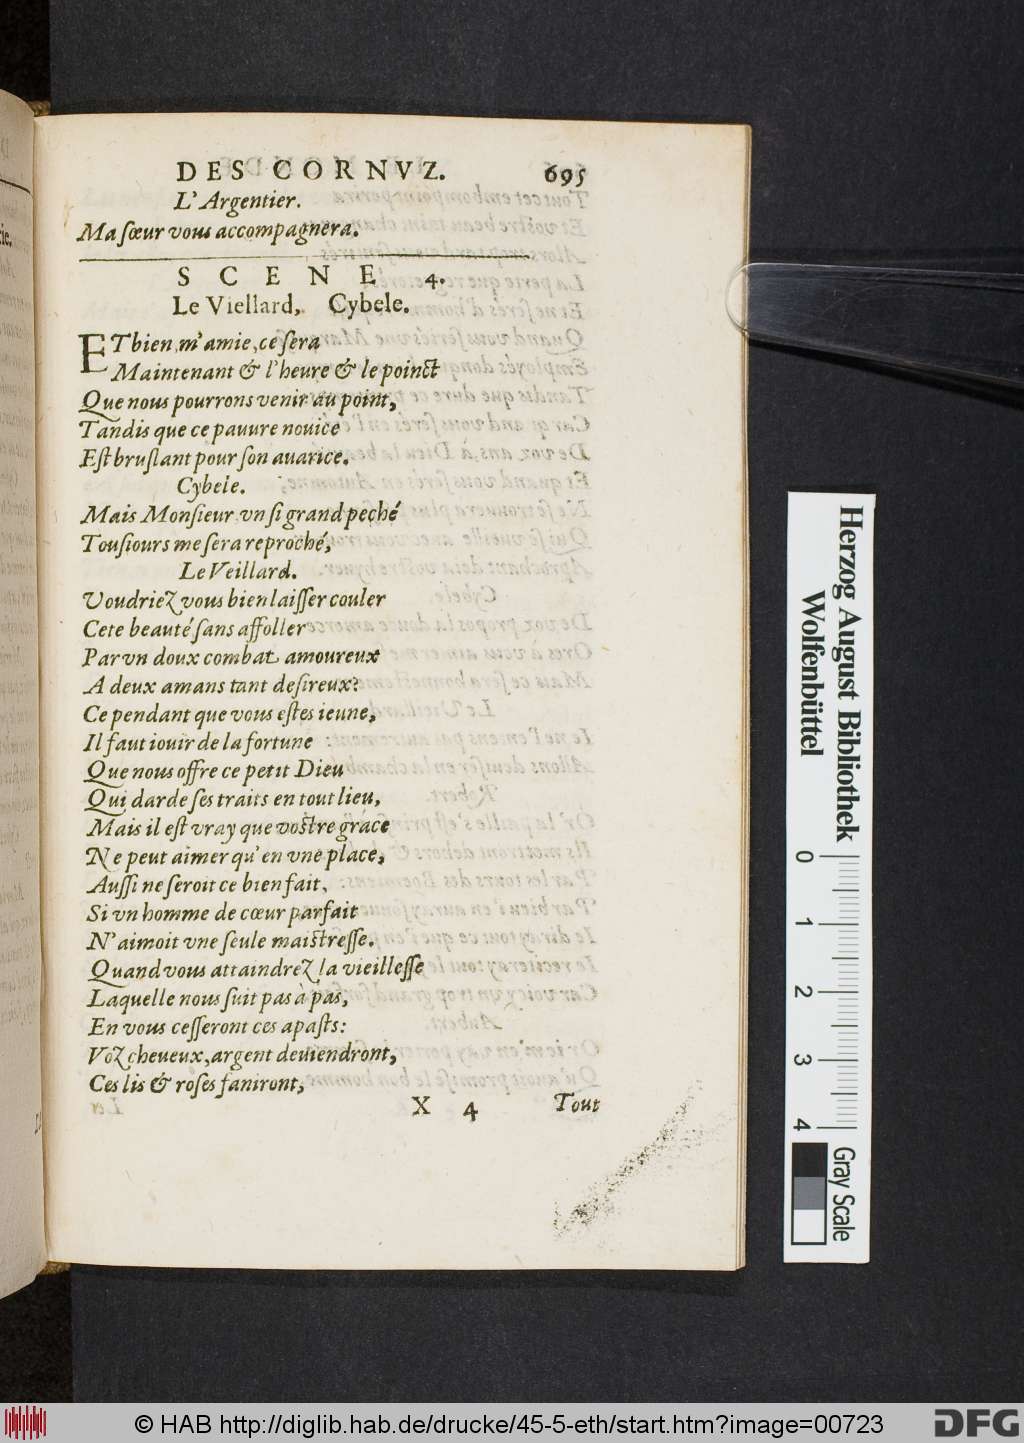 DES CORNVZ. 695
L'Argentier.
Ma sœur vous accompagnera.
SCENE 4.
Le Viellard, Cybele.
ET bien m'amie, ce sera
Maintenant & l'heure & le poinct
Que nous pourrons venir au point,
Tandis que ce pauure nouice
Est bruslant pour son auarice.
Cybele.
Mais Monsieur vn si grand peché
Tousiours me sera reproché,
Le Veillard.
Voudriez vous bien laisser couler
Cete beauté sans affoller
Par vn doux combat amoureux
A deux amans tant desireux?
Ce pendant que vous estes ieune,
Il faut iouir de la fortune
Que nous offre ce petit Dieu
Qui darde ses traits en tout lieu,
Mais il est vray que vostre grace
Ne peut aimer qu'en vne place,
Aussi ne seroit ce bien fait,
Si vn homme de cœur parfait
N'aimoit vne seule maistresse.
Quand vous attaindrez la vieillesse
Laquelle nous suit pas à pas,
En vous cesseront ces apasts:
Voz cheueux, argent deuiendront,
Ces lis & roses faniront,
X 4 Tout
Herzog August Bibliothek
Wolfenbüttel
0 1 2 3 4
Gray Scale
© HAB http://diglib.hab.de/drucke/45-5-eth/start.htm?image=00723
DFG